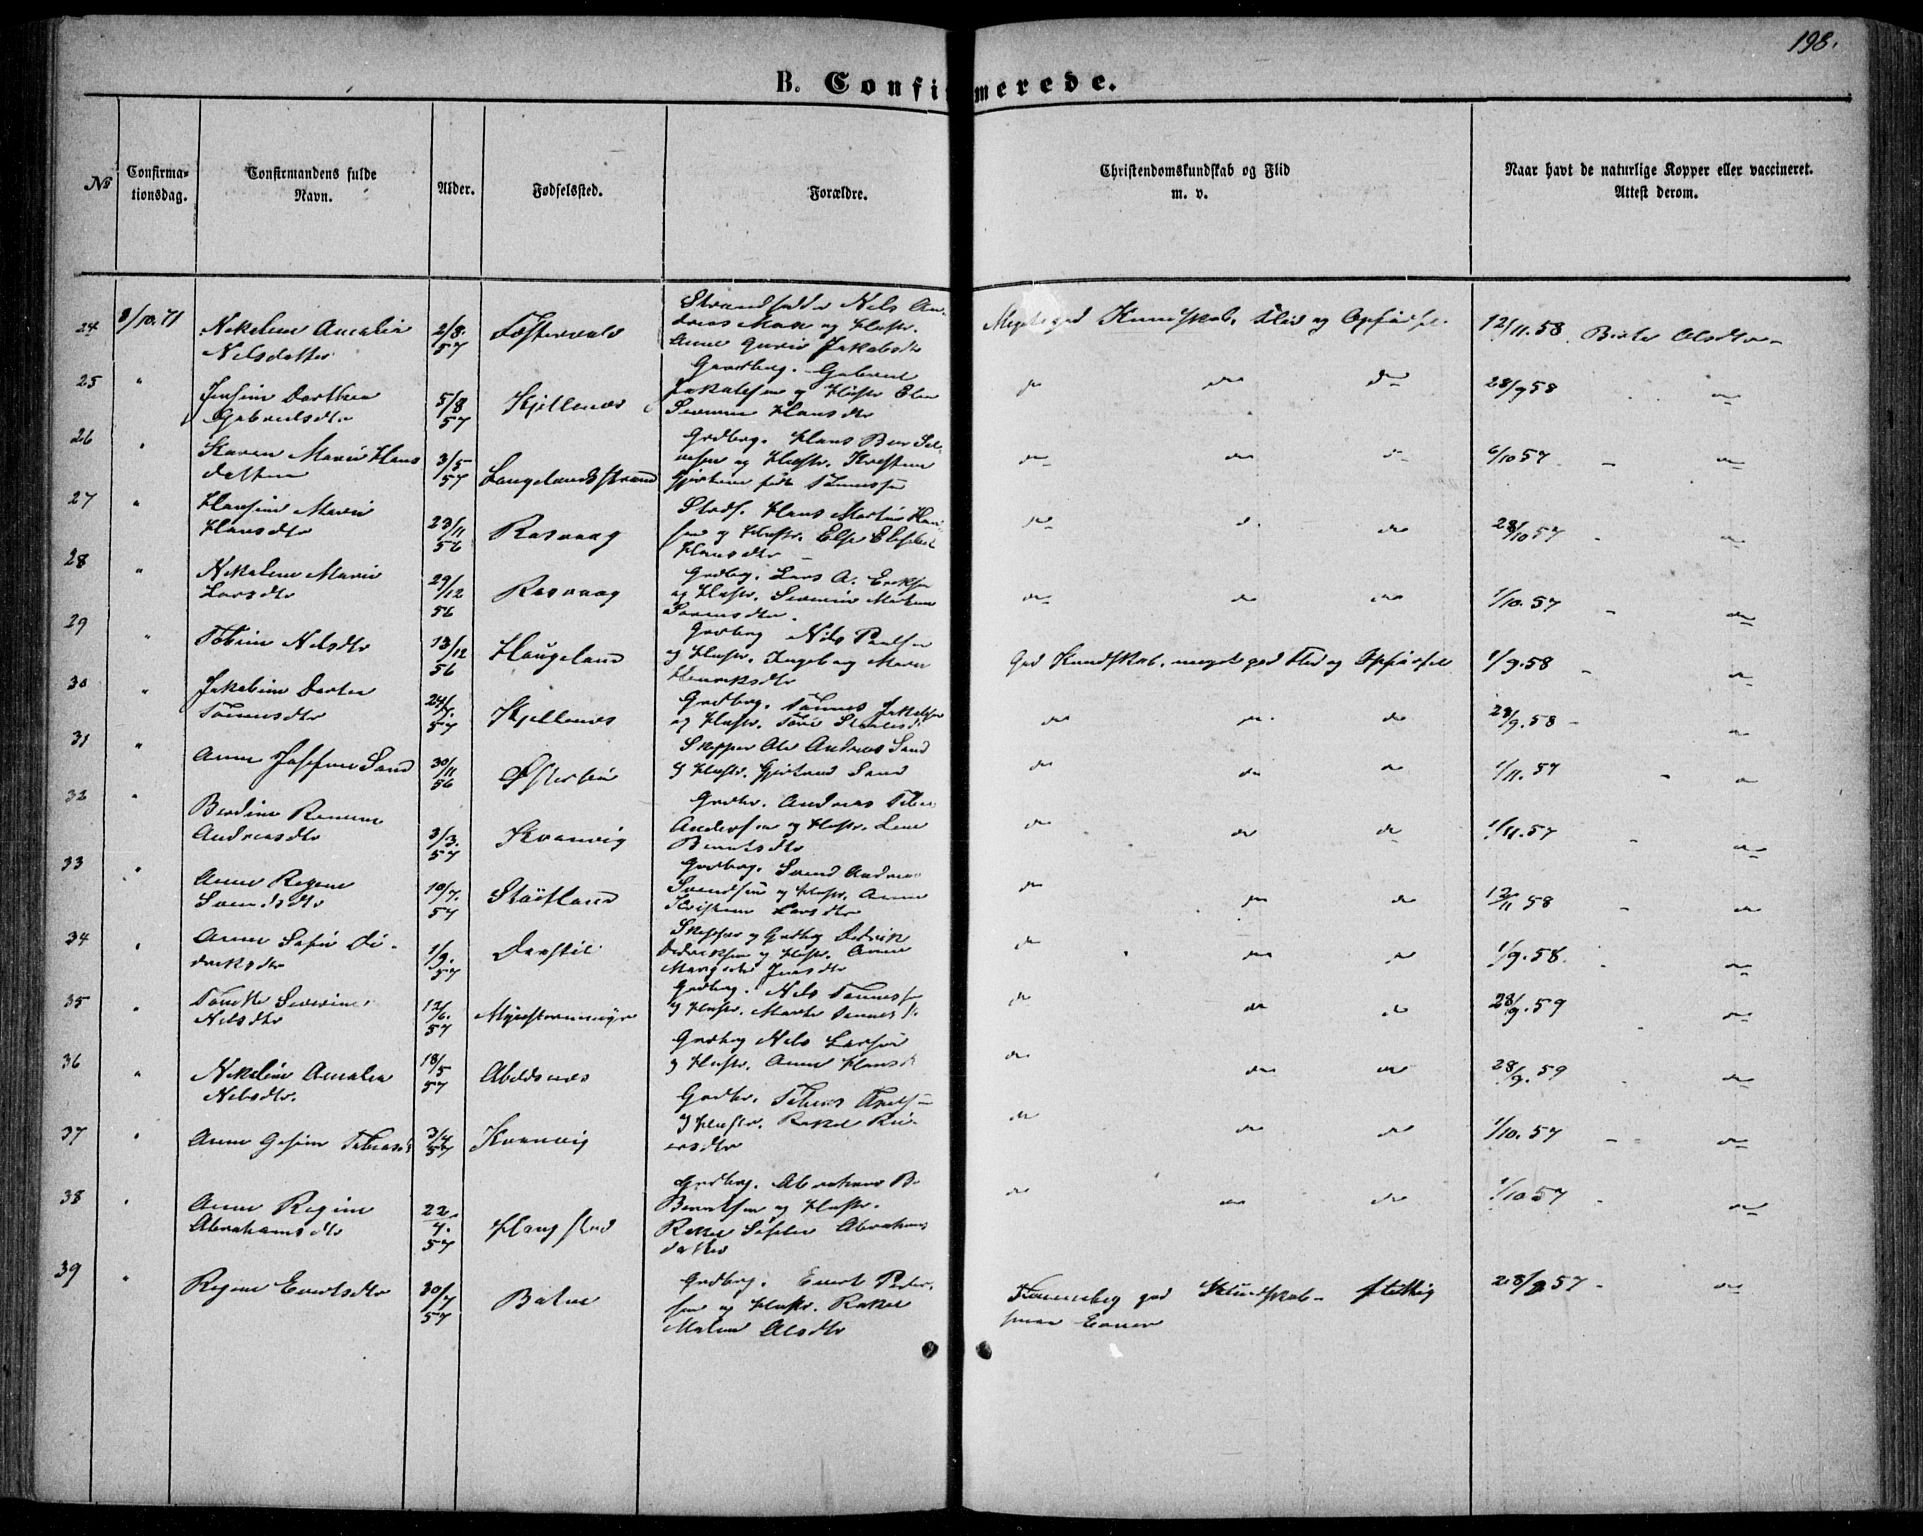 198.
B. Confirmerede.
No
Confirma-
tionsdag.
Confirmandens fulde
Navn.
Alder.
Fødselssted.
Forældre.
Christendomskundskab og Flid
m. v.
Naar havt de naturlige Kopper eller vaccineret.
Attest derom.
24 8/10.71 Nekoline Amalia
Nelsdatter
2/8
57
Strandsidder Nils An-
dreas og Hustr.
Anne Jakobsdtr
Meget god Kundskab, Flid og Opførsel
12/11.58. Olsdtr
25 " Jensine Dorthea
Gabrielsdtr
5/8
57
Kjellenes
Gaardbrg. Gabriel
Jakobsen og Hustr Elen
Severine Hansdtr
do do do
28/9 58 do
26 " Karen Marie Hans
datter
3/5
57
Langelandsstrand
Grdbrg. Hans
og Hustr. Kristine
do do do
6/10 57 - do
27 " Hansine Marie
Hansdtr
23/11
56
Rasvaag
Hans Martin Han-
sen og Hustr. Else Elisabet
Hansdtr
do do do
28/10 57 - do
28 " Nekoline Marie
Larsdtr
29/12
56
Rasvaag
Grdbrg. Lars A. Eriksen
og Hustr. Severine
Sørensdtr.
do do do
1/10.57 - do
29 " Tobine Nelsdtr
13/12
56
Haugeland
Grdbrg Nils Paulsen
og Hustr. Ingeborg Marie
Henriksdtr
God Kundskab, meget god Flid og Opførsel
1/9.58 - do
30 " Jakobine Dortea
Tønnesdtr
24/7.
57
Kjellenes
Grdbrg. Tønnes Jakobsen
og Hustr.
do do do
28/9.58 - do
31 " Anne Josefine Sand
30/11
56
Østerbø
Skipper Ole Andreas Sand
og Hustr. Gjertrud Sand
do do do
1/11.57 - do
32 " Berdine
Andreasdtr
3/3.
57
Kvanvig
Grdbr. Andreas
Andersen og Hustr. Lene
Berntsdtr
do do do
1/11.57 - do
33 " Anne Regine
Svendsdtr
10/7.
57
Støitland
Grdbrg. Svend Andreas
Svendsen og Hustr. Anne
Kristine Larsdtr
do do do
12/11 58 - do
34 " Anne Sofie Di-
driksdtr
1/9.
57
Skipper og Grdbrg Didrik
Didriksen og Hustr. Anne
Margrete Jensdtr
do do do
1/9.58. do
35 " Tonette Severine
Nelsdtr
12/6.
57
Grdbrg. Nils Tønnessen
og Hustr. Marthe Tønnesdt.
do do do
28/9.59 do
36 " Nekoline Amalia
Nelsdtr.
18/5
57
Abelsnes
Grdbrg Nels Larsen
og Hustr. Anne Hansd
do do do
28/9.59 do
37 " Anne Gesine Tobiasd
3/4
57
Kvanvig
Grdbr. Tobias
og Hustr. Rakel Rei-
ersdtr
do do do
1/10.57 - do
38 " Anne Regine
Abrahamsdtr
22.
4.
57
Haugstad
Grdbrg. Abraham B.
Berntsen og Hustr.
Rakel Abrahams
datter
do do do
1/10 57 - do
39 " Regine Evertsdtr
30/7
57
Grdbrg. Evert Peder-
sen og Hustr. Rakel
Malene Olsdtr
Temmelig god Kundskab - flittig
smaa Evner
28/9 57 - do